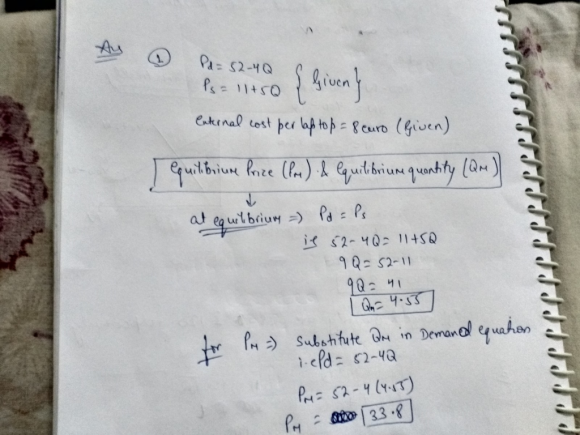 Ans ① Pd = 52-4Q
Ps = 11+5Q {Given}
External cost per laptop = 8 euro (Given)
Equilibrium Price (PM) & Equilibrium quantity (QM)
↓
at equilibrium => Pd = Ps
i.e 52-4Q = 11+5Q
9Q = 52-11
9Q = 41
QM = 4.55
for PM => Substitute QM in Demand equation
i.e Pd = 52-4Q
PM = 52-4(4.55)
PM = 33.8